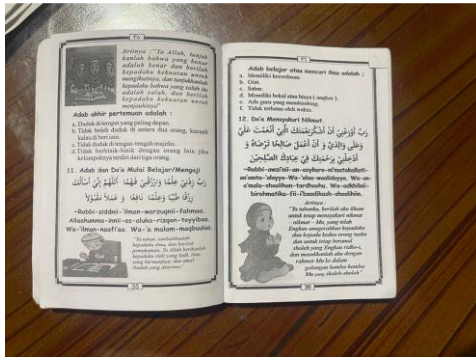 Artinya : "Ya Allah, tunjuk
kanlah bahwa yang benar
adalah benar dan berilah
kepadaku kekuatan untuk
mengikutinya, dan tunjukkanlah
kepadaku bahwa yang salah itu
adalah salah, dan berilah
kepadaku kekuatan untuk
menjauhinya"
Adab akhir pertemuan adalah :
a. Duduk di tempat yang paling depan.
b. Tidak boleh duduk di antara dua orang, kecuali
kalau di beri izin.
c. Tidak duduk di tengah-tengah majelis.
d. Tidak berbisik-bisik dengan orang lain jika
kelompoknya terdiri dari tiga orang.
11. Adab dan Do'a Mulai Belajar/Mengaji
رَبِّ زِدْنِي عِلْمًا وَارْزُقْنِي فَهْمًا اَللّٰهُمَّ إِنِّي أَسْأَلُكَ
رِزْقًا طَيِّبًا وَعِلْمًا نَافِعًا وَ عَمَلًا مَقْبُوْلًا
-Robbi-ziddnii-'ilman-warzuqnii-fahmaa.
Allaahumma-innii-as-aluka-rizqan-toyyibaa.
Wa-'ilman-naafi'aa. Wa-'amalam-maqbuulaa.
"Ya tuhan, tambahkanlah
kepadaku ilmu, dan berilah
pemahaman. Ya Allah berikanlah
kepadaku rizki yang baik, ilmu
yang bermanfaat, dan amal
ibadah yang diterima."
35
Adab belajar atau mencari ilmu adalah :
a. Memiliki kecerdasan.
b. Giat.
c. Sabar.
d. Memiliki bekal atau biaya ( ongkos ).
e. Ada guru yang membimbing.
f. Tidak terbatas oleh waktu.
12. Do'a Mensyukuri Nikmat.
رَبِّ أَوْزِعْنِيْ أَنْ أَشْكُرَ نِعْمَتَكَ الَّتِيْ أَنْعَمْتَ عَلَيَّ
وَعَلَى وَالِدَيَّ وَ أَنْ أَعْمَلَ صَالِحًا تَرْضَاهُ وَ
أَدْخِلْنِيْ بِرَحْمَتِكَ فِيْ عِبَادِكَ الصَّالِحِيْنَ
Artinya :
"Ya tuhanku, berilah aku ilham
untuk tetap mensyukuri nikmat
- nikmat - Mu, yang telah
Engkau anugerahkan kepadaku
dan kepada kedua orang tuaku
dan untuk tetap beramal
sholeh yang Engkau ridho-i,
dan masukkanlah aku dengan
rahmat-Mu ke dalam
golongan hamba-hamba-
Mu yang sholeh-sholeh"
36